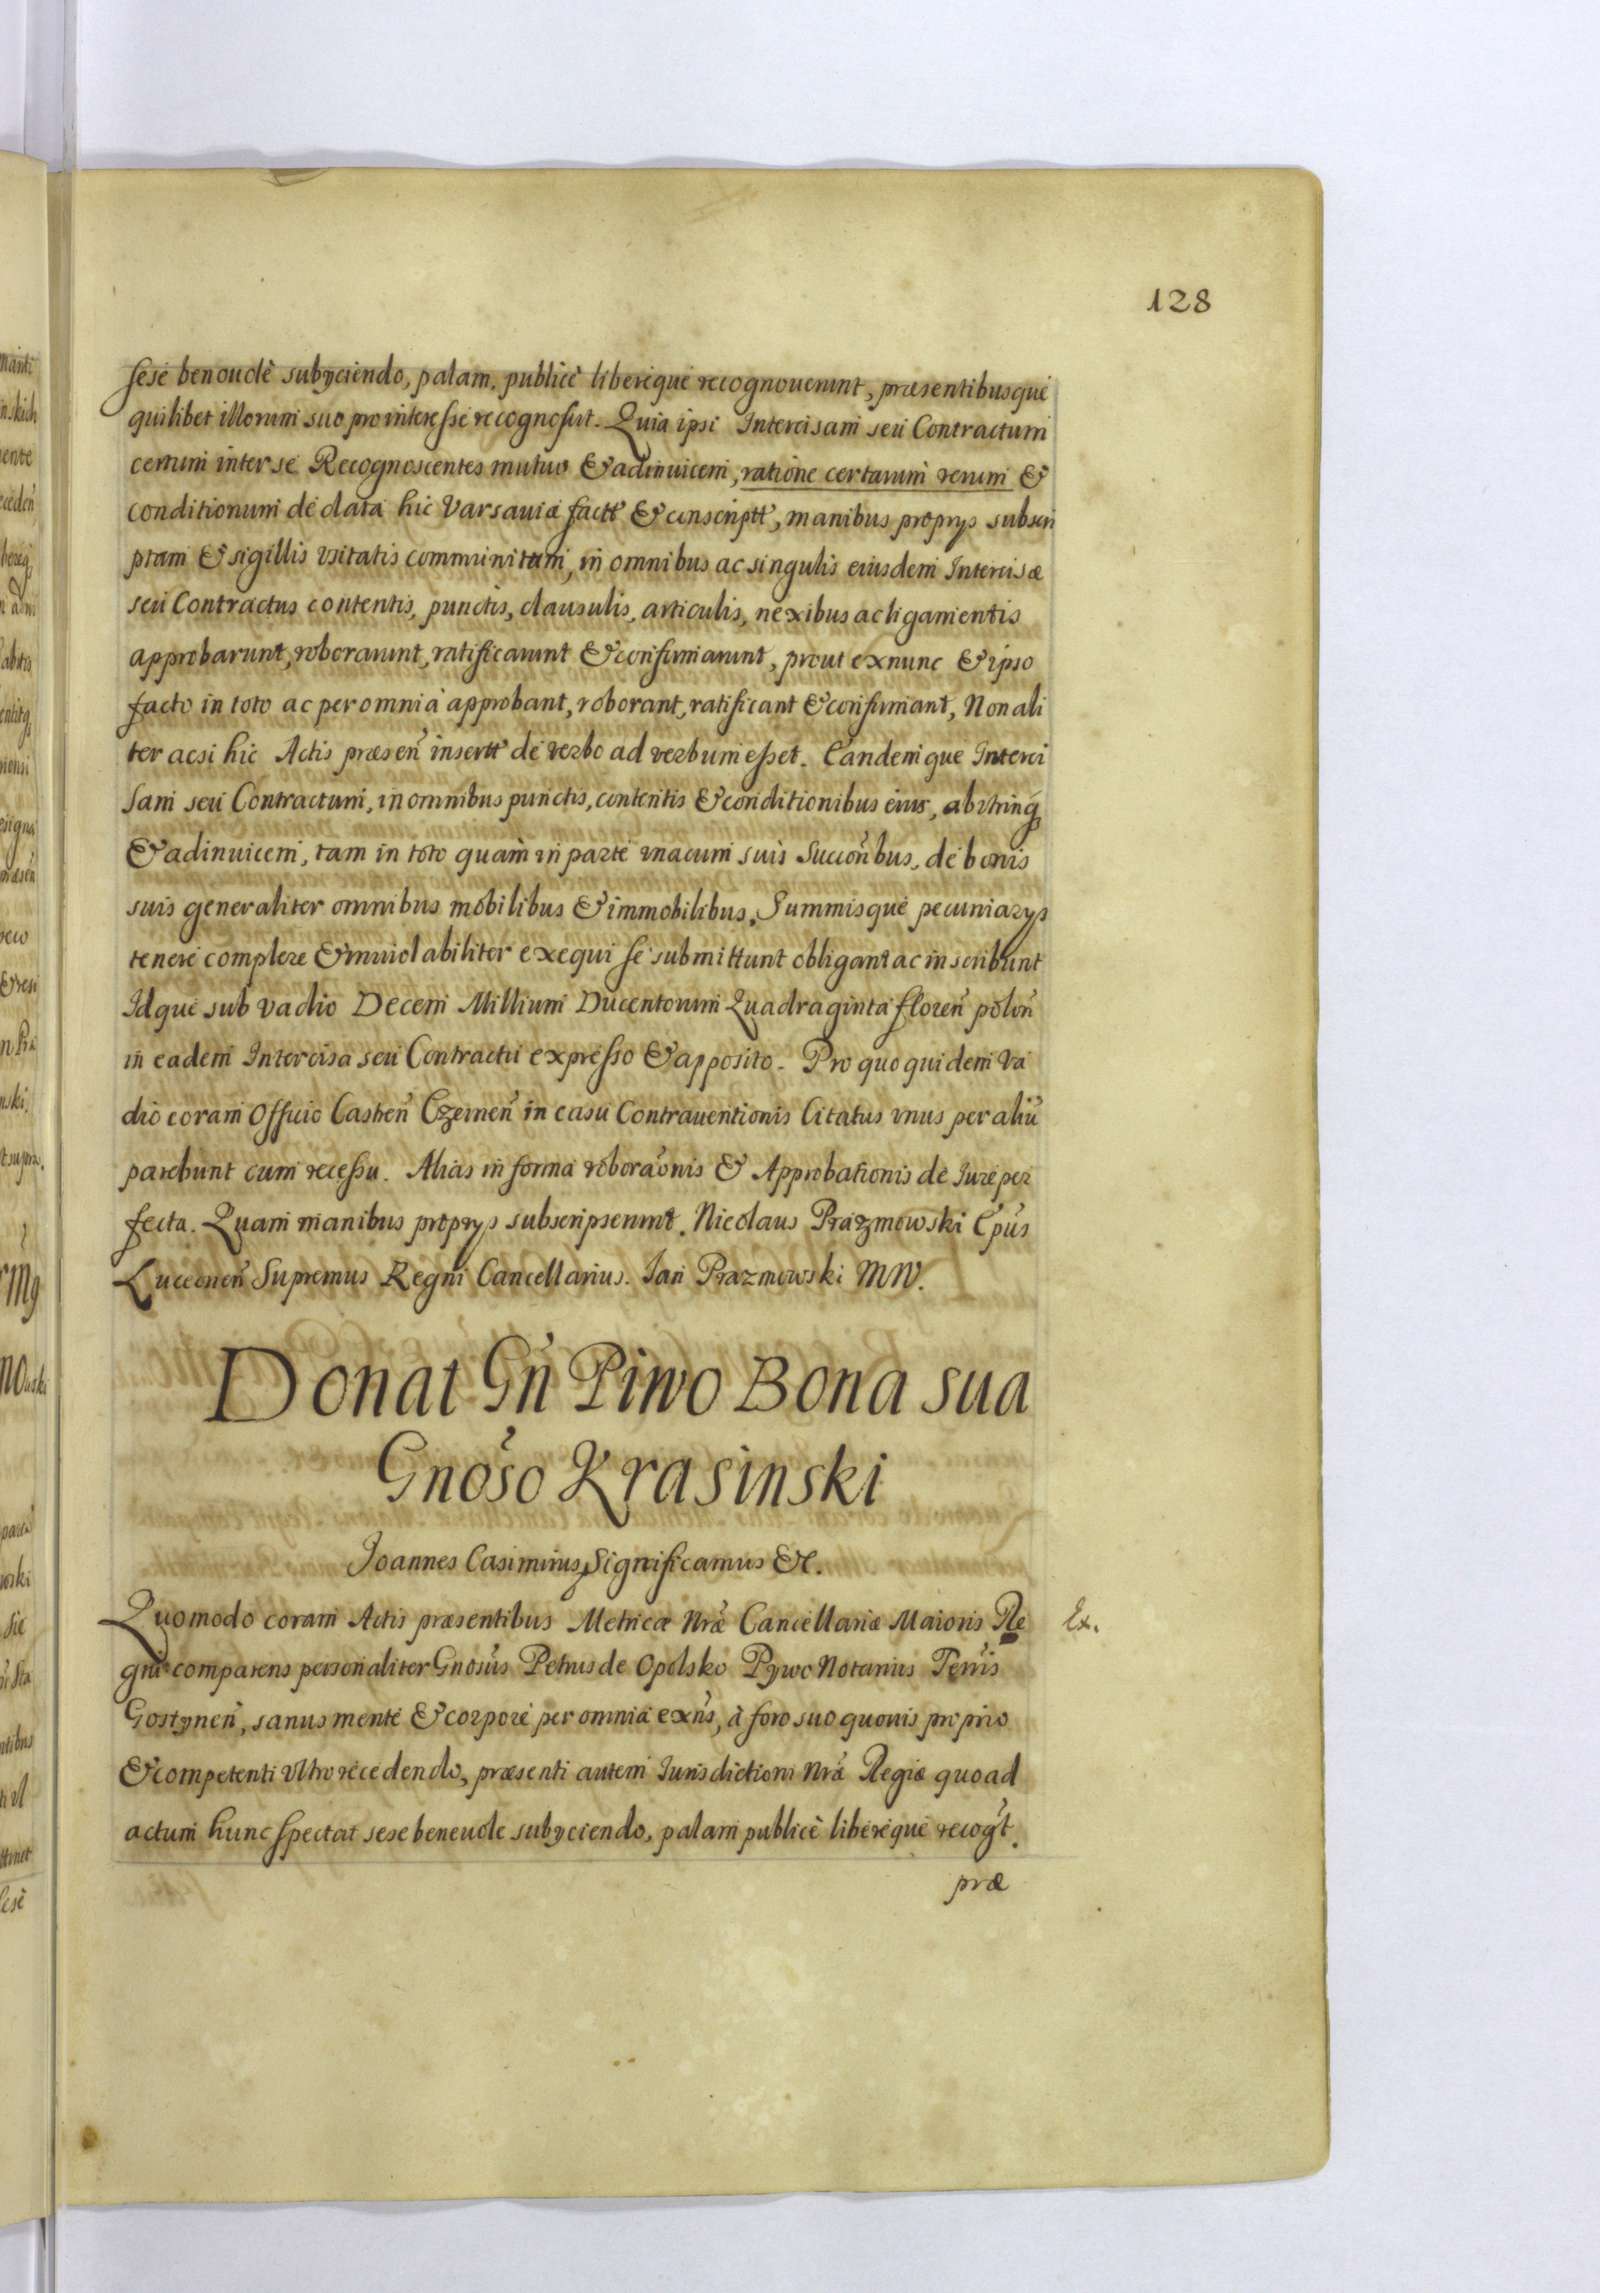 128
sese benouolè subÿciendo, palam, publicè liberèque recognouerunt, præsentibusque
quilibet illorum suo pro interesse recognoscit. Quia ipsi Intercisam seu Contractum
certum inter se Recognoscentes mutuo & adinuicem, ratione certarum rerum &
conditionum de data hic Varsauiæ factt & conscriptt, manibus proprÿs subscri
ptam & sigillis vsitatis communitam, in omnibus ac singulis eiusdem Intercisæ
seu Contractus contentis, punctis, clausulis, articulis, nexibus ac ligamentis
approbarunt, roborarunt, ratificarunt & confirmarunt, prout ex nunc & ipso
facto in toto ac per omnia approbant, roborant, ratificant & confirmant, Non ali
ter acsi hic Actis præsen̄ insertt de verbo ad verbum esset. Eandemque Interci
sam seu Contractum, in omnibus punctis, contentis & conditionibus eius, ab vtrinq
& adinuicem, tam in toto quam in parte vnacum suis Succon̄bus, de bonis
suis generaliter omnibus mobilibus & immobilibus, Summisque pecuniarÿs
tenere complere & inuiolabiliter exequi se submittunt obligant ac inscribunt
Idque sub vadio Decem Millium Ducentorum Quadraginta floren̄ polon̄
in eadem Intercisa seu Contractu expresso & apposito. Pro quo quidem va
dio coram Officio Castren̄ Czernen̄ in casu Contrauentionis Citatus vnus per aliū
parebunt cum recessu. Alias in forma roboraōnis & Approbationis de Iure per
fecta. Quam manibus proprÿs subscripserunt. Nicolaus Prazmowski Ep̄us
Lucconen̄ Supremus Regni Cancellarius. Jan Prazmowski MW.
Donat Gn̄ Piwo Bona sua
Gnōso Krasinski
Joannes Casimirus Significamus &c.
Quomodo coram Actis præsentibus Metricæ Nrǣ Cancellariæ Maioris Re
Ex.
gni comparens personaliter Gnosūs Petrus de Opolsko Pÿwo Notarius Terrīs
Gostÿnen̄, sanus mente & corpore per omnia exn̄s, à foro suo quouis proprio
& competenti vltro recedendo, præsenti autem Iurisdictioni Nrǣ Regiæ quoad
actum hunc spectat sese beneuole subÿciendo, palam publicè liberèque recogt̄.
præ